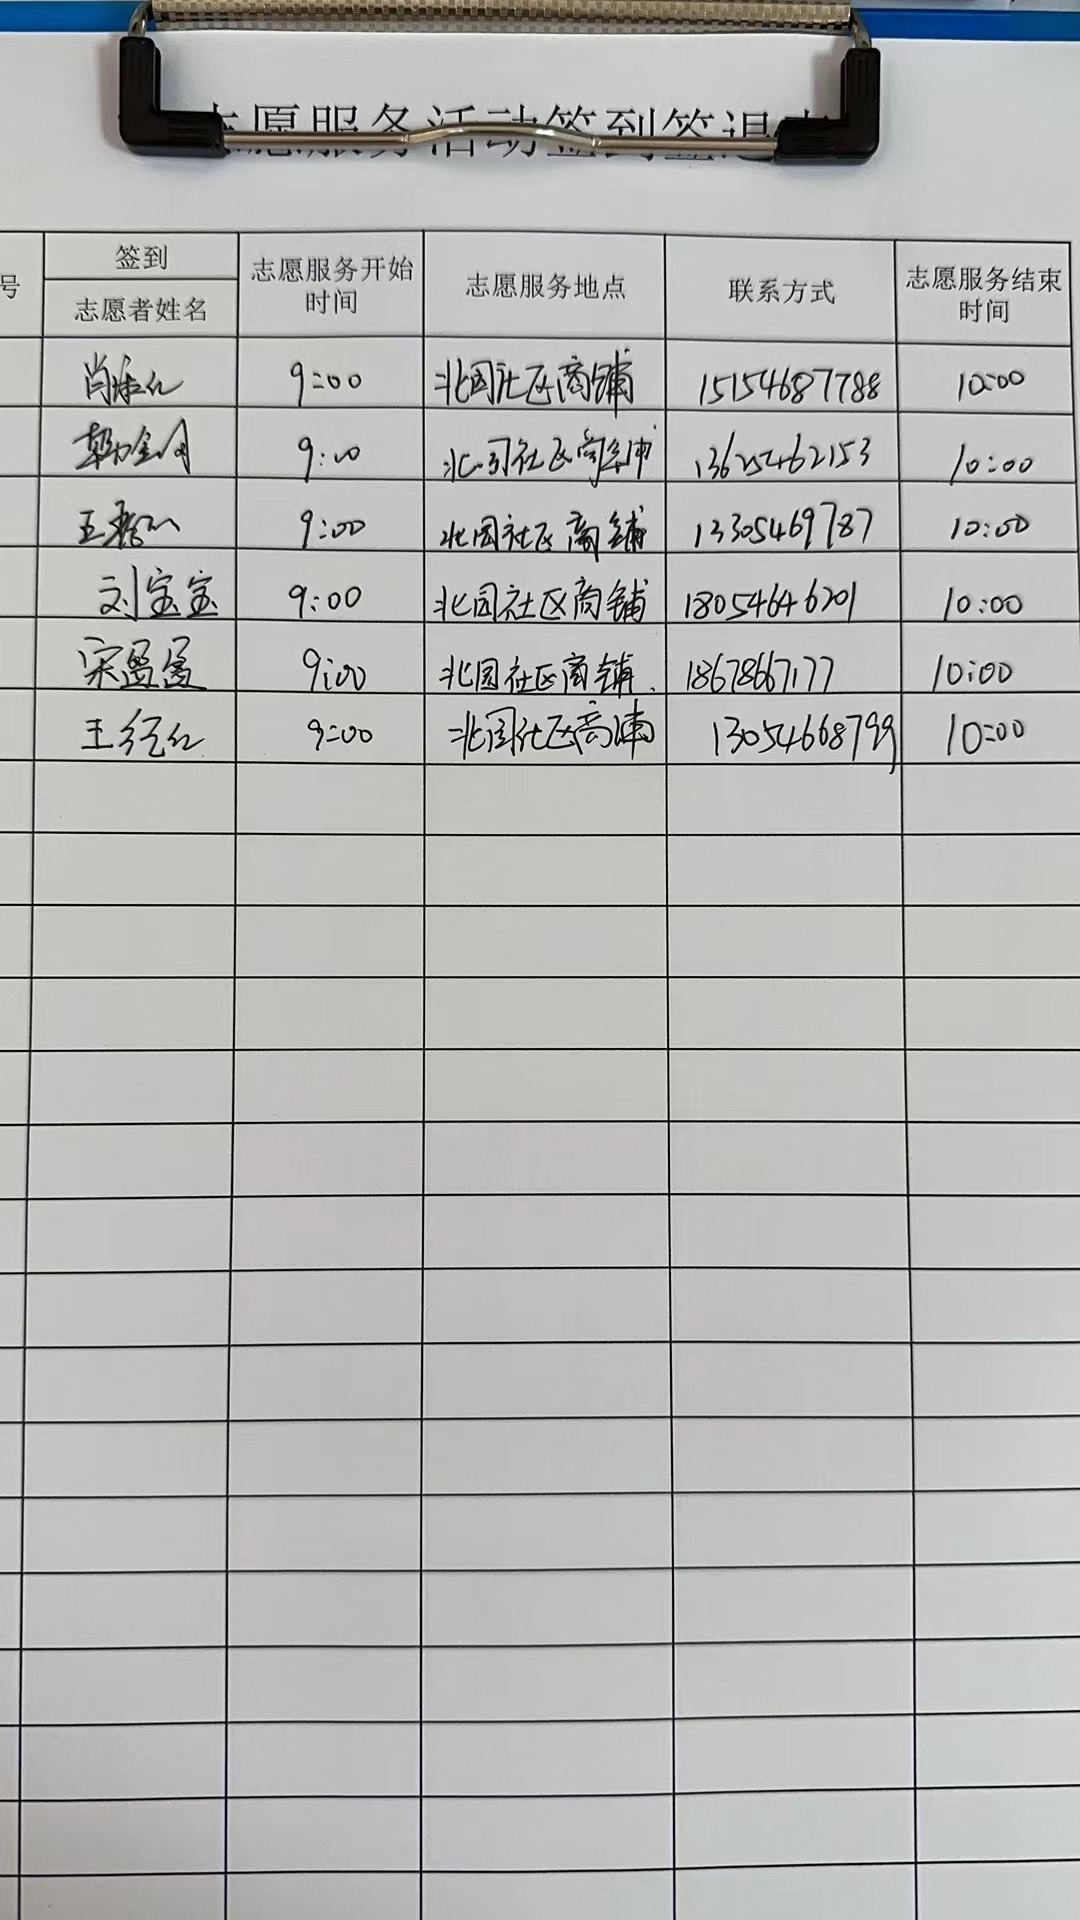 志愿服务活动签到签退表
号 签到 志愿者姓名 志愿服务开始时间 志愿服务地点 联系方式 志愿服务结束时间
肖 9:00 北国社区商铺 15154687788 10:00
9:00 北国社区商铺 13625462153 10:00
王 9:00 北国社区商铺 13305469787 10:00
刘宝宝 9:00 北国社区商铺 18054646201 10:00
宋盈盈 9:00 北国社区商铺 18678667177 10:00
王红 9:00 北国社区商铺 13054668799 10:00